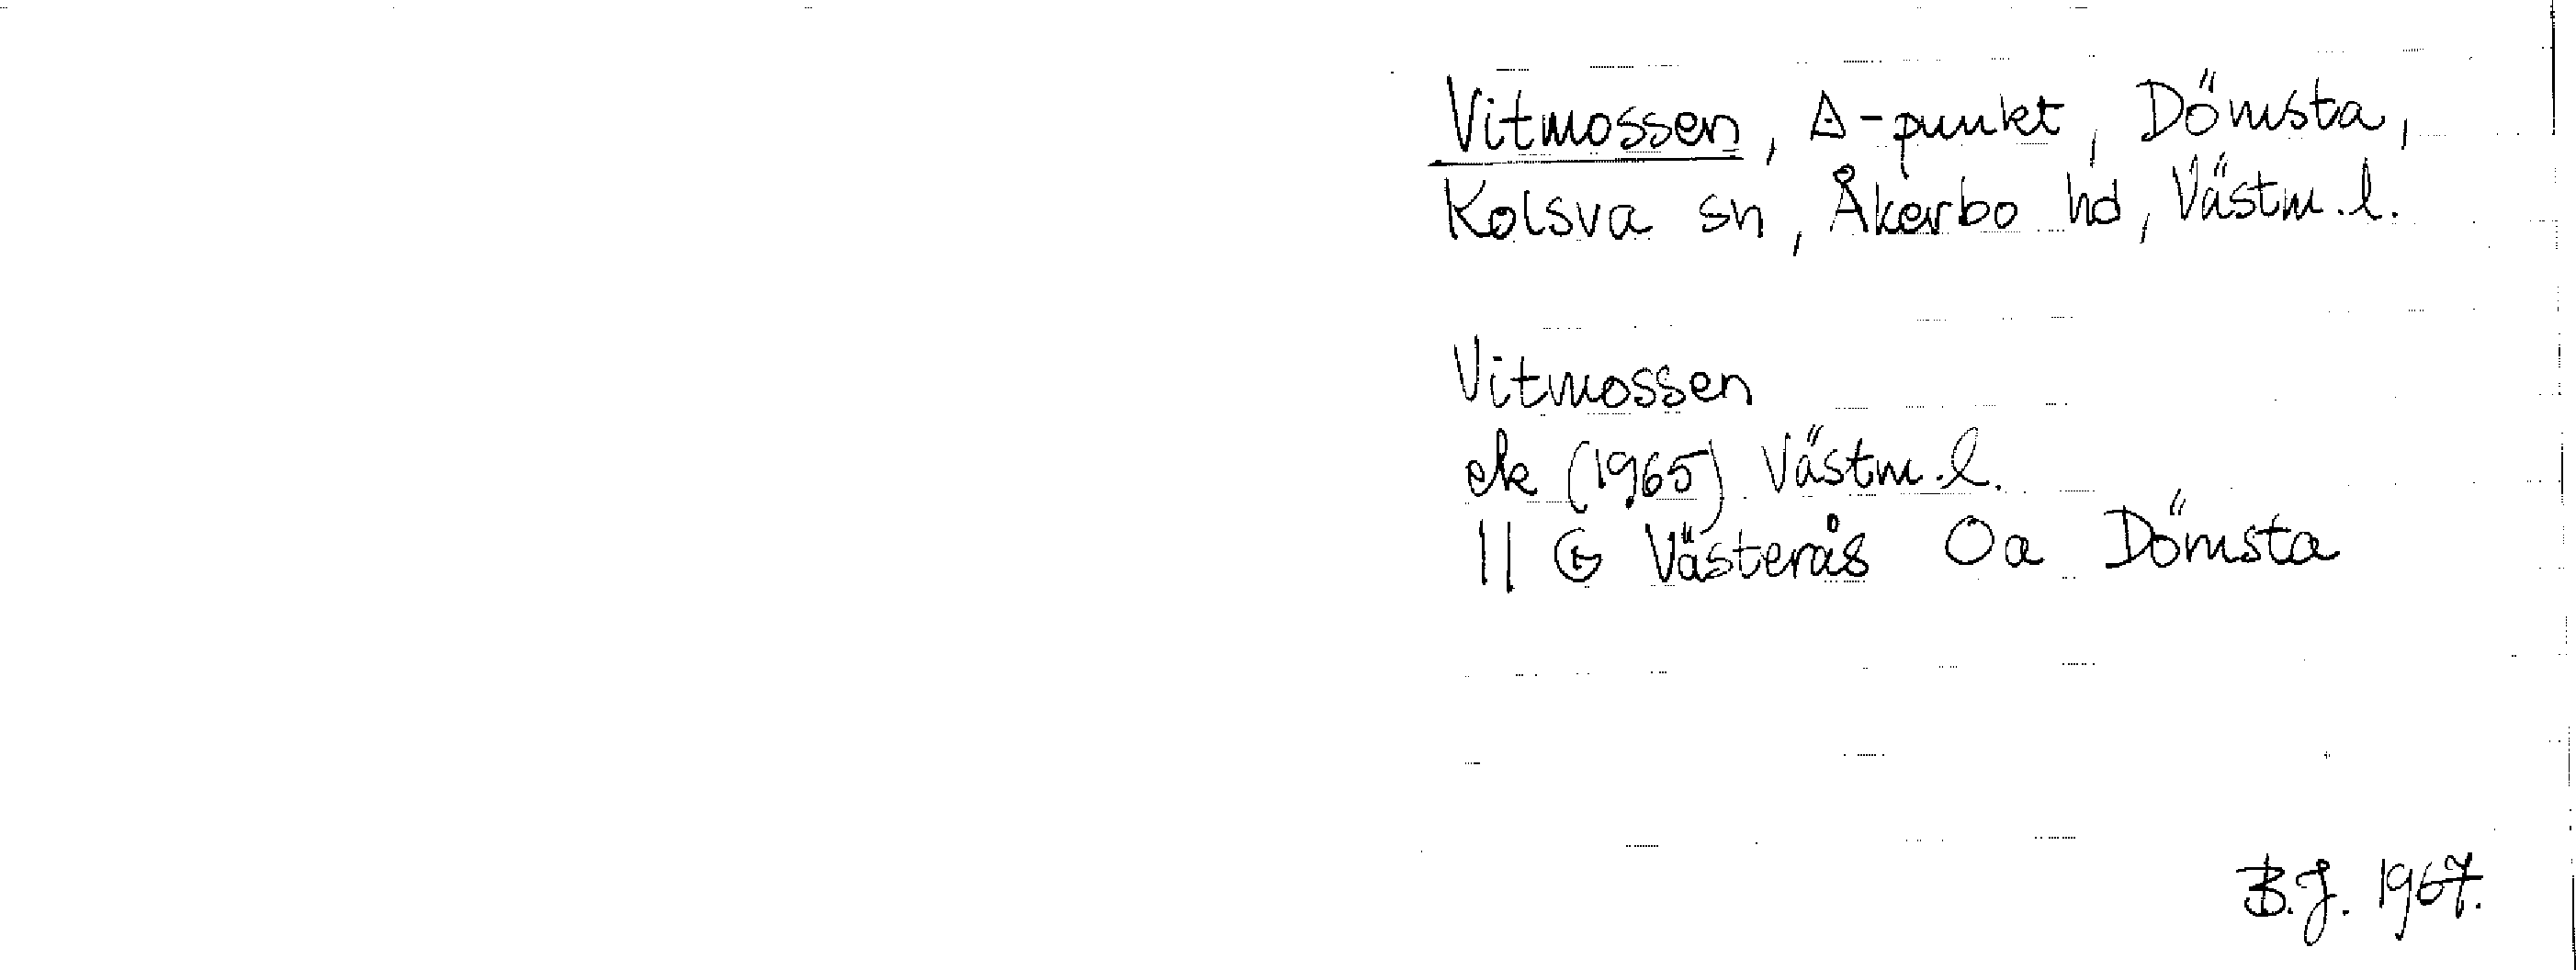 Vitmossen, ∆-punkt, Dömsta,
Kolsva sn, Åkerbo hd, Västm. l.
Vitmossen
ek (1965) Västm. l.
11 G Västerås 0a Dömsta
B.J. 1967.